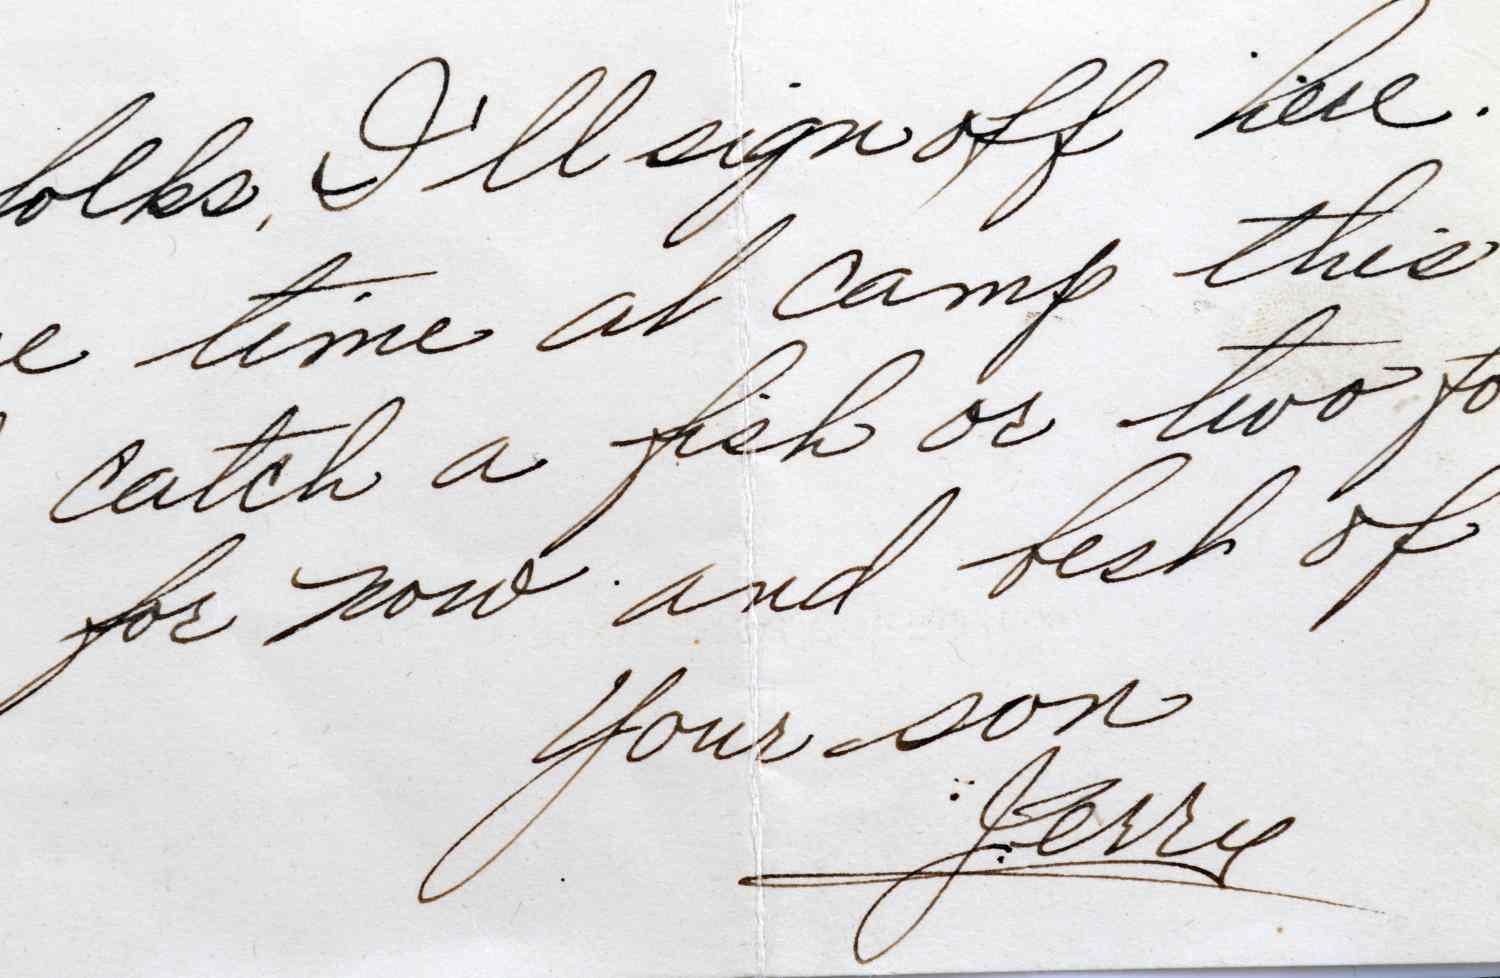 folks, I'll sign off here.
e time at camp this
catch a fish or two fo
for now and best of
Your son
Jerry